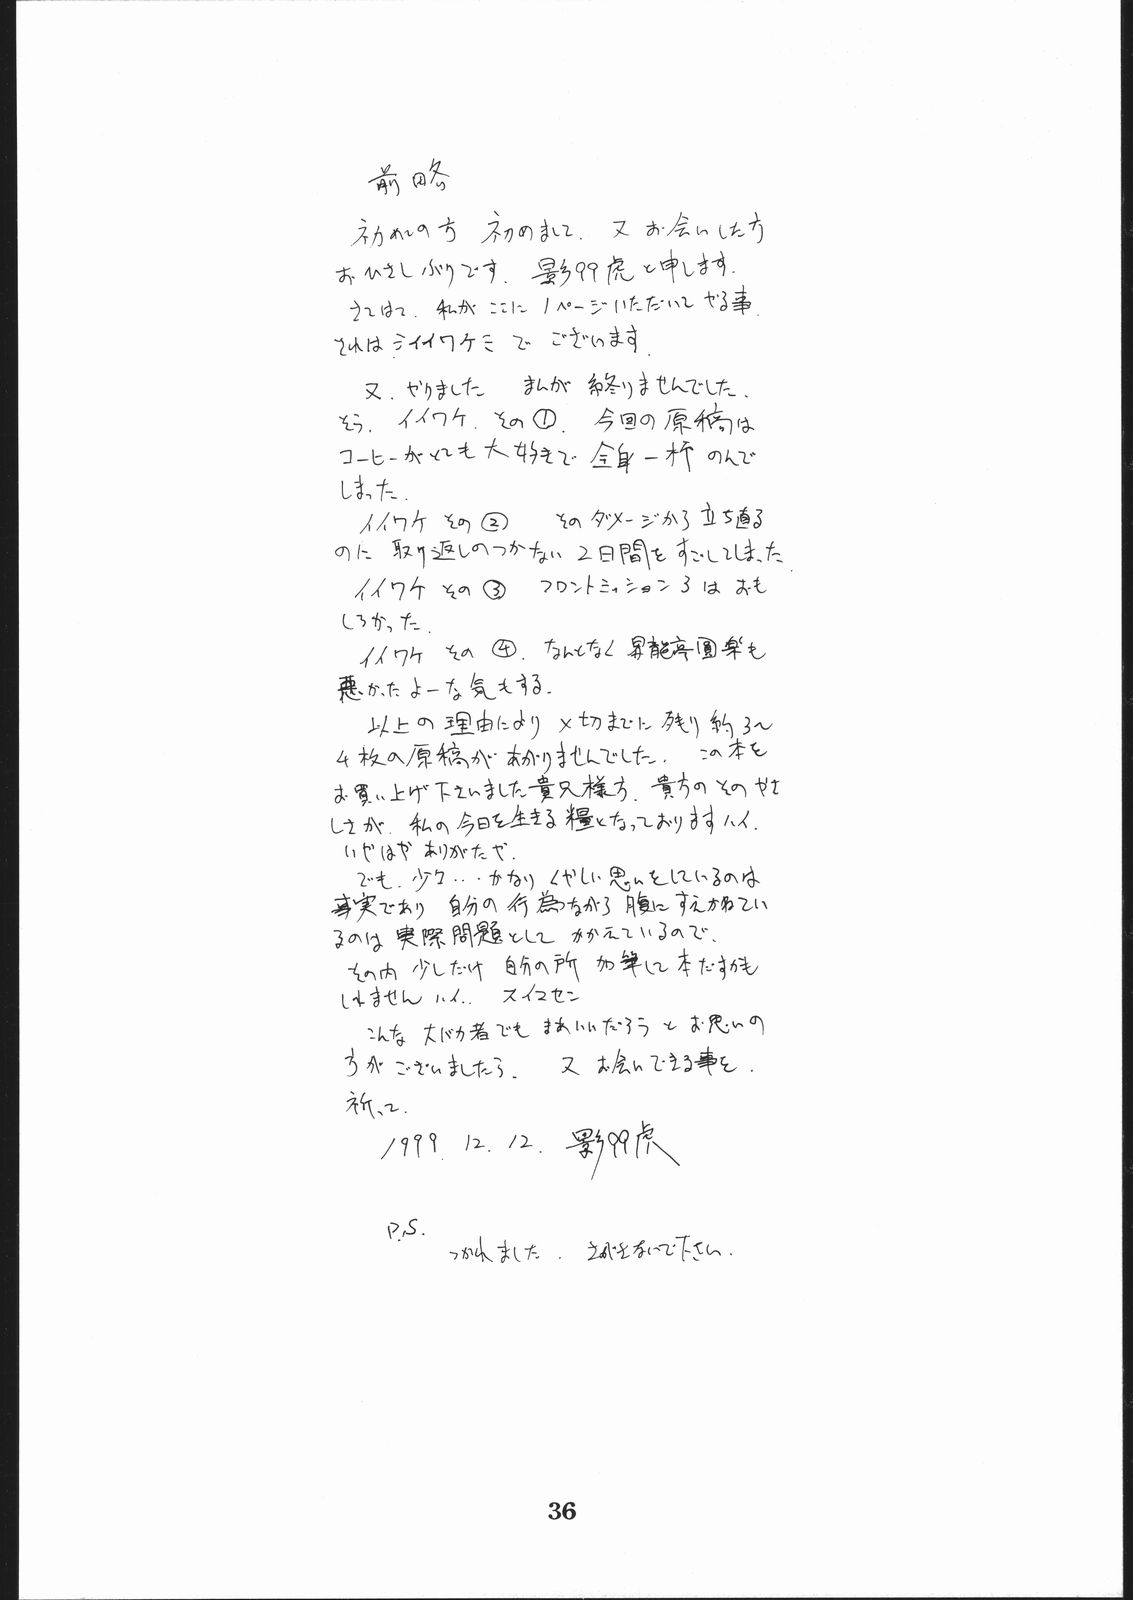 前略
初めての方 初めまして、又お会いした方
おひさしぶりです、影99虎と申します。
さてはて、私がここに1ページいただいてやる事、
それはミイイワケミでございます。
又、やりました まんが終りませんでした、
そう、イイワケ、その①、今回の原稿は
コーヒーがとても大好きで全身一杯のんで
しまった。
イイワケその② そのダメージから立ち直る
のに取り返しのつかない2日間をすごしてしまった。
イイワケその③ フロントミッション3はおも
しろかった。
イイワケその④、なんとなく昇龍亭圓楽も
悪かったよーな気もする。
以上の理由により〆切までに残り約3〜
4枚の原稿があがりませんでした。この本を
お買い上げ下さいました貴兄様方、貴方のそのやさ
しさが、私の今日を生きる糧となっておりますハイ、
いやはやありがたや、
でも、少々…かなりくやしい思いをしているのは
事実であり 自分の行為ながら腹にすえかねてい
るのは実際問題としてかかえているので、
その内 少しだけ 自分の所 加筆して本だすかも
しれませんハイ、スイマセン
こんな大バカ者でもまあいいだろうとお思いの
方がございましたら、又お会いできる事を、
祈って、
1999.12.12. 影99虎
P.S.
つかれました、さがさないで下さい、
36